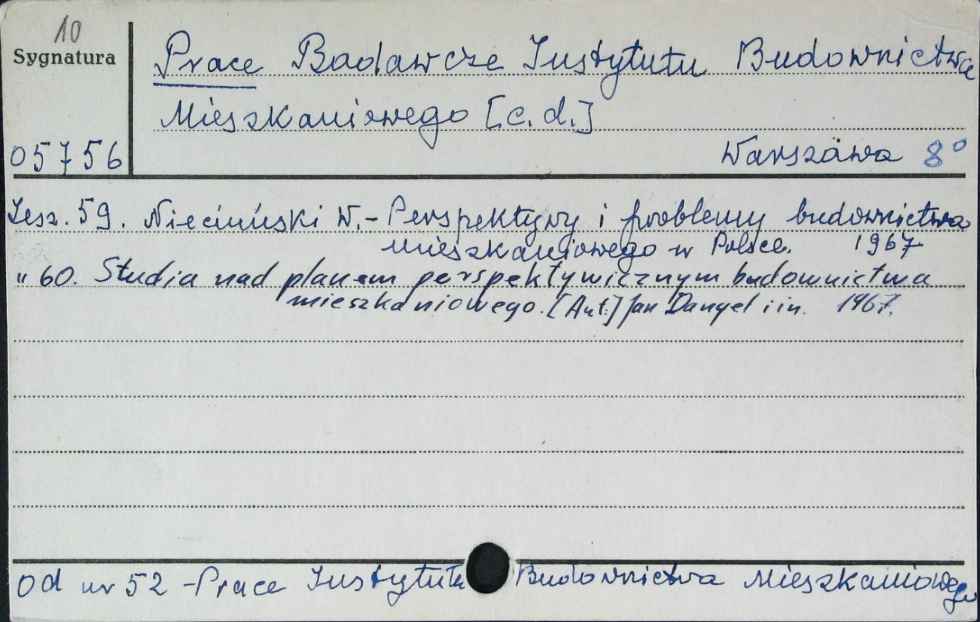 10
Sygnatura
05756
Prace Badawcze Instytutu Budownictwa
Mieszkaniowego [c.d.]
Warszawa 8°
Zesz. 59. Nieciuński W. - Perspektywy i problemy budownictwa
mieszkaniowego w Polsce. 1967
" 60. Studia nad planem perspektywicznym budownictwa
mieszkaniowego. [Aut.] Jan Dangel i in. 1967.
Od nr 52 - Prace Instytutu Budownictwa Mieszkaniowego